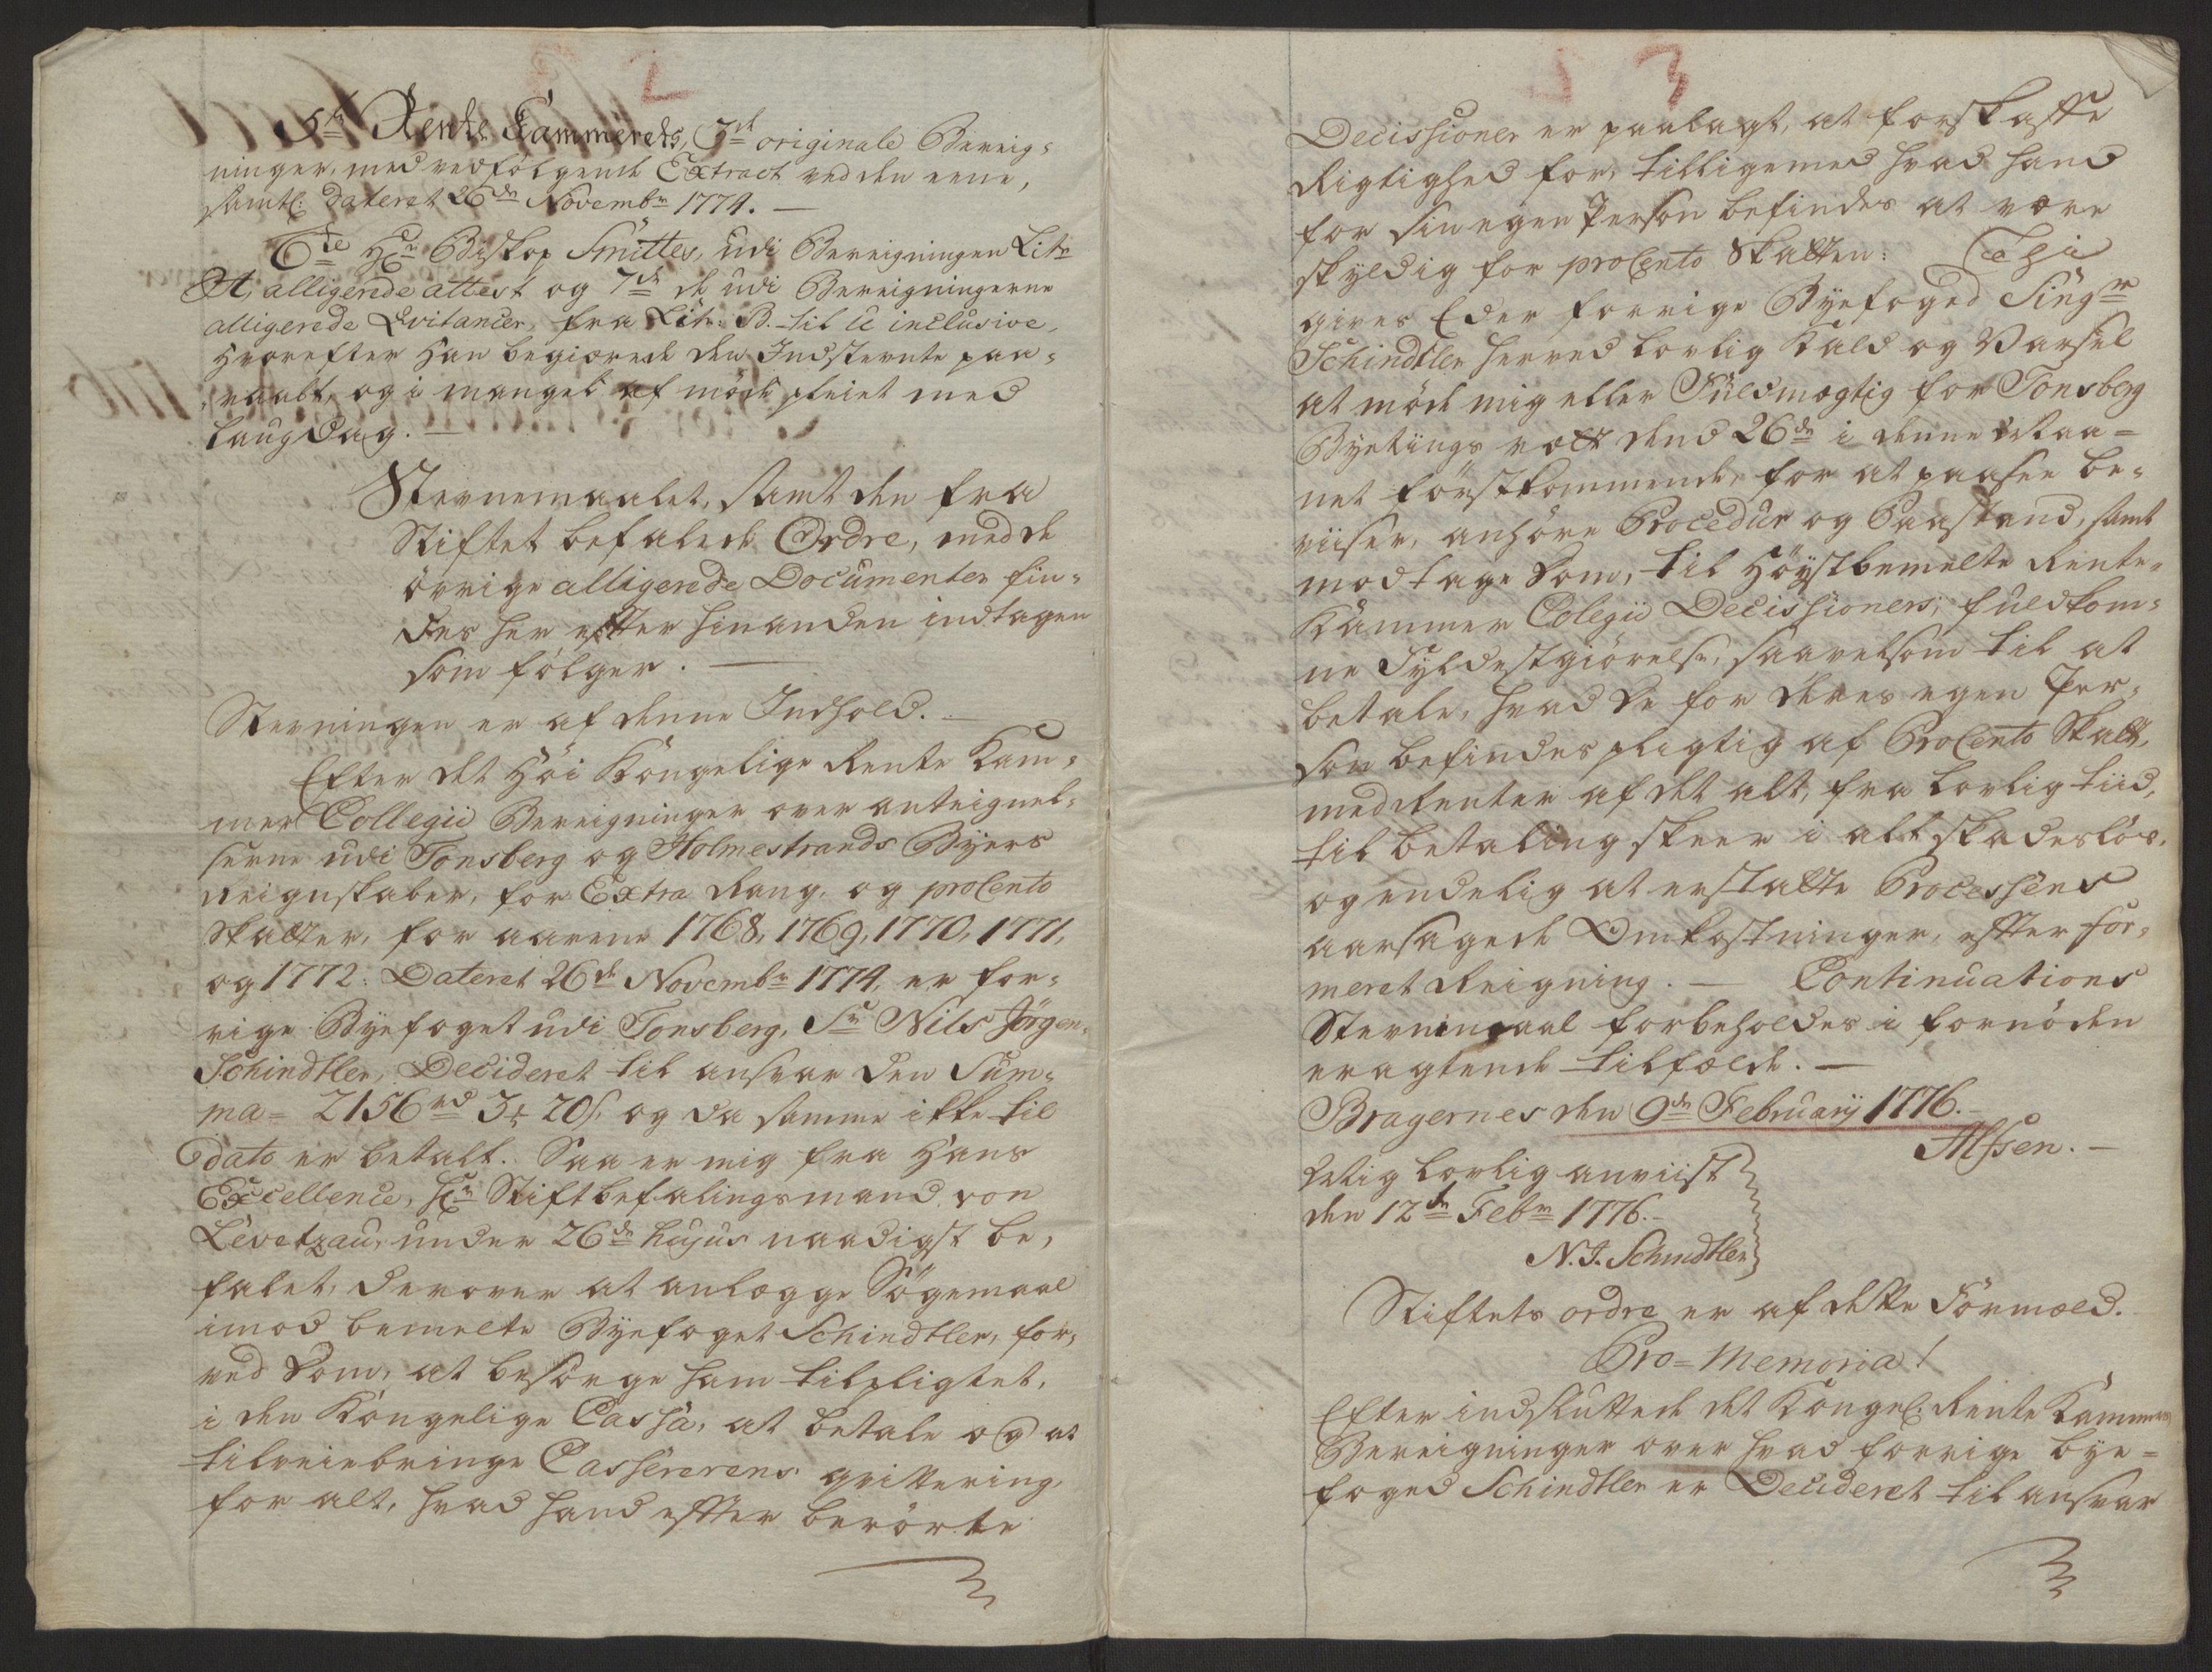 2
5te Rente Kammerets, 3de originale Bereig-
ninger, med vedfölgende Extract ved den eene,
samtl: Dateret 26de Novembr 1774. —
6te Hr Biskop Smittes, udi Bereigningen Litr
A, alligerede attest og 7de de udi Bereigningerne
alligerede Qvitancer, fra Litr: B. til U inclusive,
hvorefter han begiærede den Indstevnte paa-
raabt, og i mangel af möde pleiet med
Laugdag. —
Stevnemaalet, samt den fra
Stiftet befalede Ordre, med de
övrige alligerede Documenter fin-
des her efter hinanden indtagen
som fölger. —
Stevningen er af denne Indhold. —
Efter det Höi Kongelige Rente Kam-
mer Collegii Bereigninger over antegnel-
serne udi Tonsberg og Holmestrands Byers
Reignskaber, for Extra Rang, og proCento
Skatter, for aarene 1768, 1769, 1770, 1771,
og 1772. Dateret 26de Novembr 1774, er for-
rige Byefoget udi Tonsberg, Sr Nils Jörgen
Schindtler, Decideret til ansvar den Sum-
ma = 2156 rd 3 ort 20 s. og da samme ikke til
dato er betalt. Saa er mig fra Hans
Excellence, Hr Stiftbefalingsmand von
Levetzau, under 26de hujus naadigst be-
falet, derover at anlægge Sögemaal
imod bemelte Byefoget Schindtler, for,
ved Dom, at besörge ham tilpligtet,
i den Kongelige Cassa, at betale og at
tilveiebringe Cassererens qvittering,
for alt, hvad hand efter berörte
3
Decissioner er paalagt, at forskaffe
Rigtighed for, tilligemed hvad hand
for sin egen Person befindes at være
skyldig for proCento Skatten: Thi
gives Eder forrige Byefoged Sing:r
Schindtler herved lovlig Kald og Varsel
at möde mig eller Fuldmægtig for Tonsberg
Byetings rætt dend 26de i denne Maa-
net förstkommende, for at paasee be-
viiser, anhöre Procedur og Paastand, samt
modtage Dom, til Höystbemelte Rente-
Kammer Colegii Decissioners, fuldkom-
ne Fyldestgiörelse, saavelsom til at
betale, hvad De for deres egen Per-
son befindes pligtig af ProCento Skatt,
med Renter af det alt, fra lovlig tiid,
til betaling skeer i alt skadeslös,
og endelig at erstatte Processens
aarsagede Omkostninger, efter for-
meret Reigning. — Continuations
Stevnemaal forbeholdes i fornöden
eragtende tilfælde. —
Bragernes den 9de February 1776. —
Alsen. —
Mig lovlig anviist
den 12te Febr 1776. —
N. J. Schindtler
Stiftets ordre er af dette Formæld.
Pro-Memoria!
Efter indsluttede det Kongel: Rente Kammers
Bereigninger over hvad forrige bye-
foged Schindtler er Decideret til ansvar